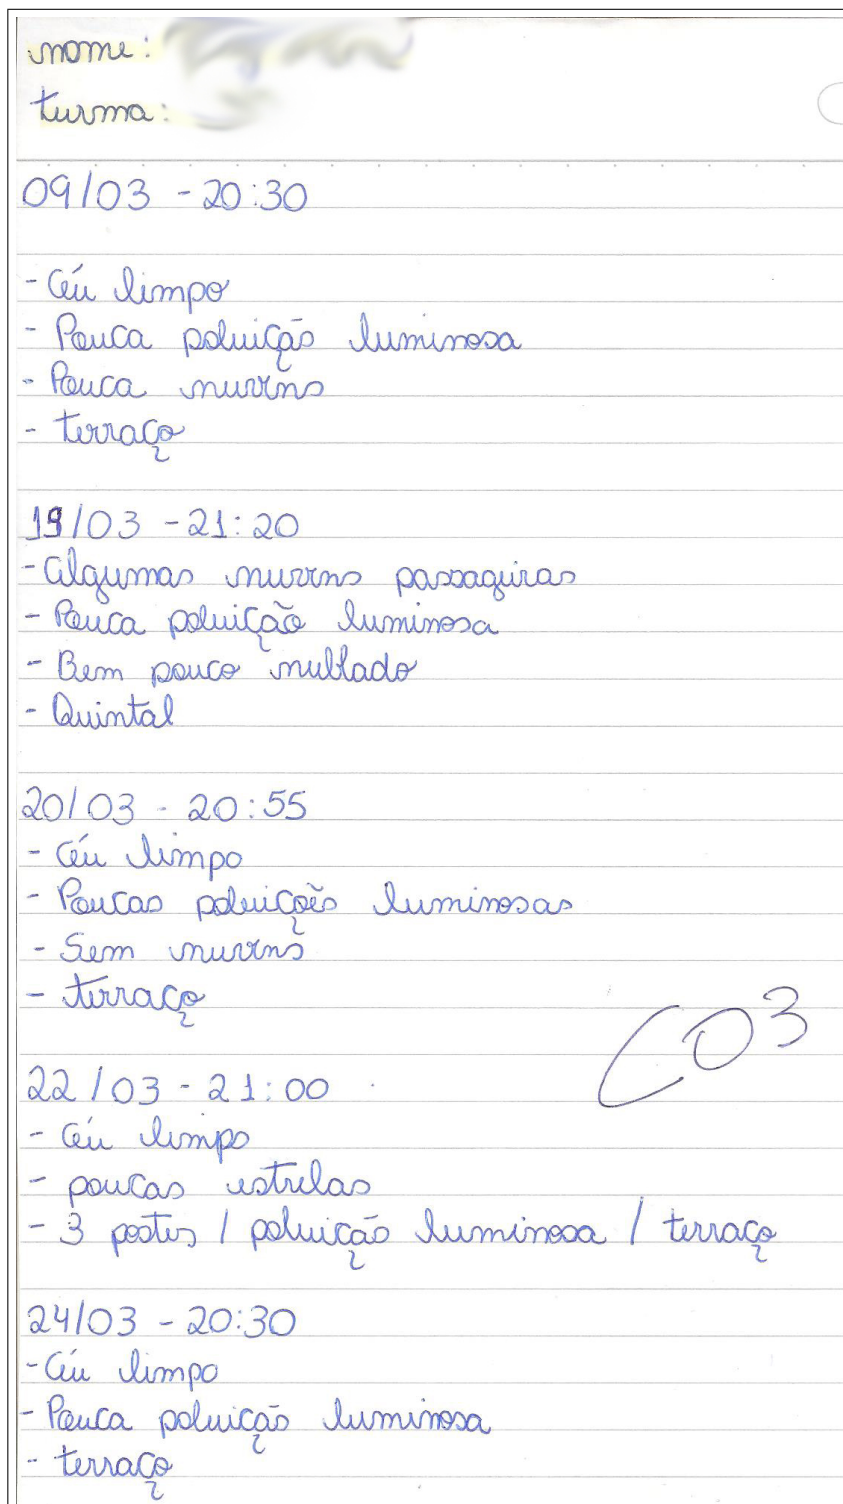 nome:
turma:
09/03 - 20:30
- Céu limpo
- Pouca poluição luminosa
- Pouca nuvens
- terraço
19/03 - 21:20
- Algumas nuvens passageiras
- Pouca poluição luminosa
- Bem pouco nublado
- Quintal
20/03 - 20:55
- Céu limpo
- Poucas poluições luminosas
- Sem nuvens
- terraço
C03
22/03 - 21:00
- Céu limpo
- poucas estrelas
- 3 postes / poluição luminosa / terraço
24/03 - 20:30
- Céu limpo
- Pouca poluição luminosa
- terraço